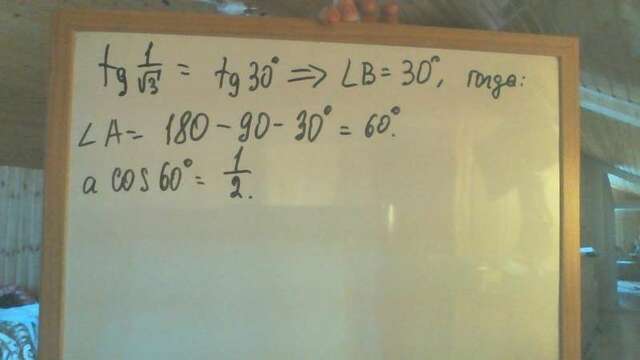 tg 1/√3 = tg 30° => ∠B = 30°, тогда:
∠A = 180 - 90 - 30° = 60°.
а cos 60° = 1/2.